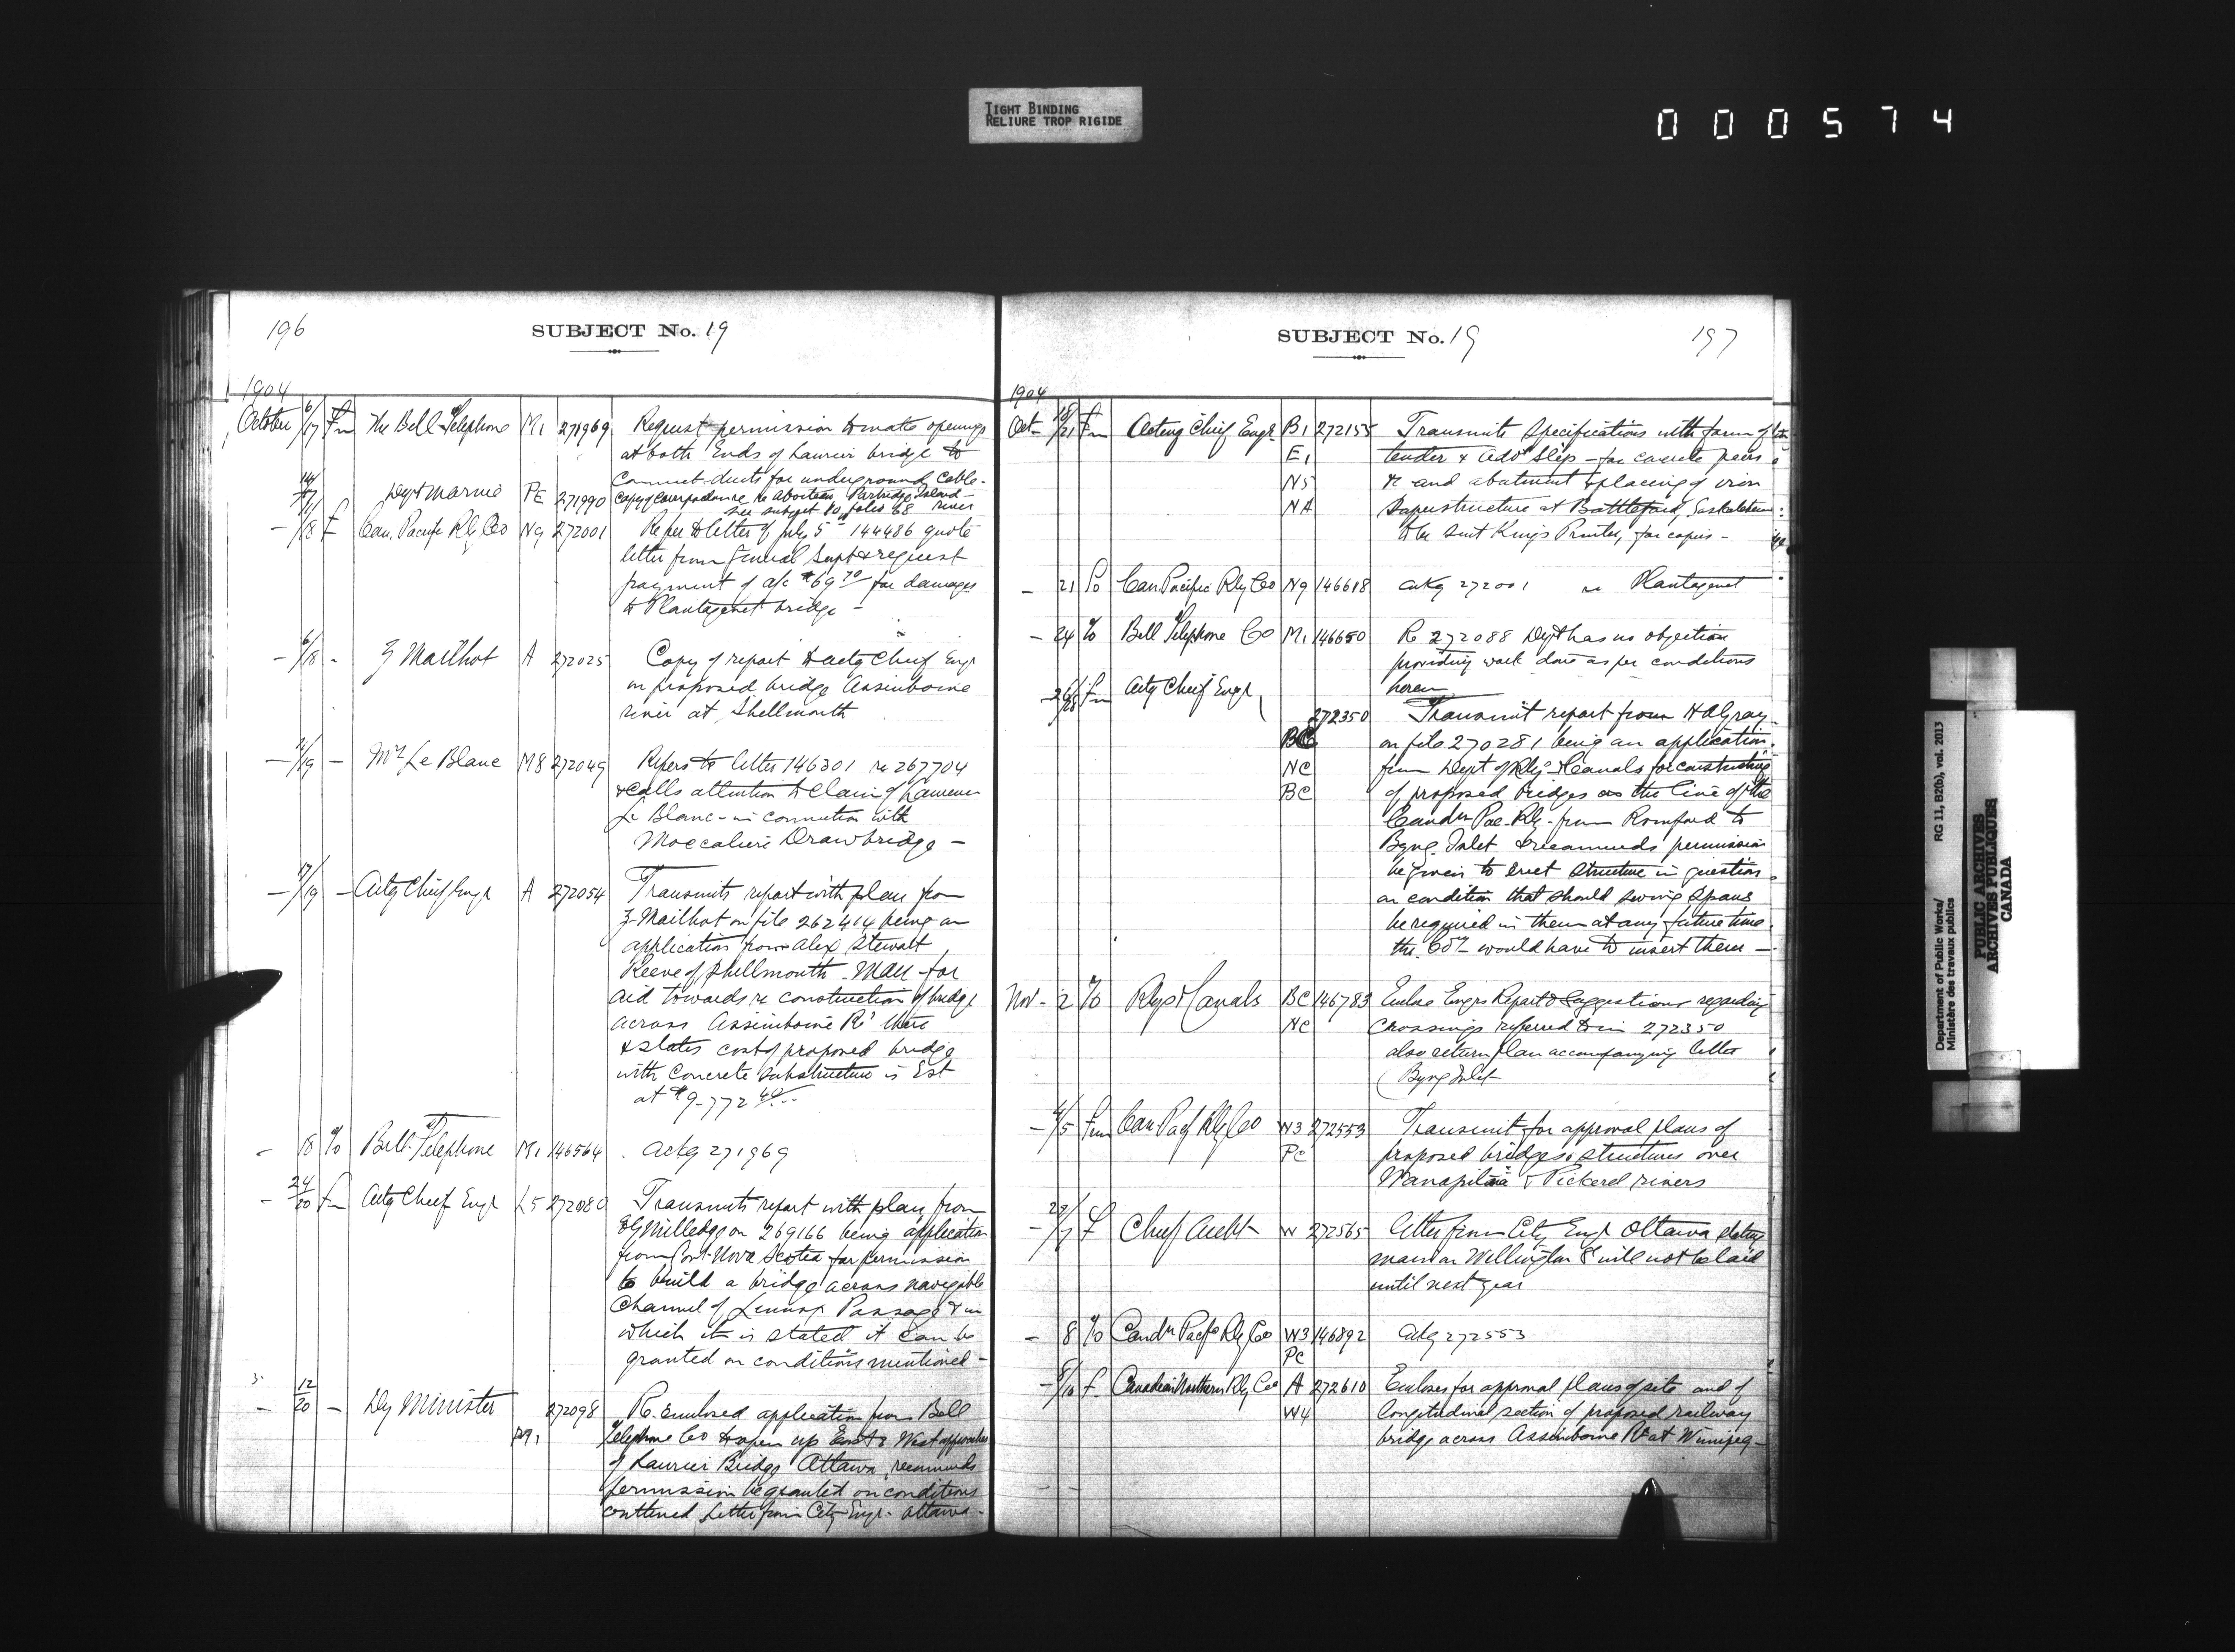 TIGHT BINDING
RELIURE TROP RIGIDE
000574
196
SUBJECT No. 19
1904
October 6/17 Fm The Bell Telephone M1 271969 Request permission to make openings
at both Ends of Laurier bridge to
connect ducts for underground cable.
14/17 Dept Marine PE 271990 Copy of Correspondence re Aboiteau Partridge Island
see subject 80 folio 68 river
– /18 F Can. Pacific Rly Co N9 272001 Refer to letter of July 5 144486 quote
letter from General Supt & request
payment of a/c $69 70 for damages
to Plantagenet bridge –
– 6/18 - Z Mailhot A 272025 Copy of report to actg Chief Engr
on proposed bridge Assiniboine
river at Shellmouth
– /19 – Mr Le Blanc M8 272049 Refers to letter 146301 re 267704
& calls attention to claim of
Le Blanc – in connection with
Drawbridge –
– 17/19 – Actg Chief Engr A 272054 Transmits report with plan from
Z Mailhot on file 262414 being an
application from Alex Stewart
Reeve of Shellmouth Man for
aid towards re construction of bridge
across Assiniboine Rr there
& states cost of proposed bridge
with concrete substructure is Est
at $9,772 40
– 18 To Bell Telephone M1 146564 ackg 271969
– 24/20 Fm Actg Chief Engr L5 272080 Transmits report with plan from
Milledge on 269166 being application
from Govt Nova Scotia for permission
to build a bridge across navigable
Channel of Lennox Passage & in
which it is stated it can be
granted on conditions mentioned –
– 12/20 – Dy Minister 272098 Re Enclosed application from Bell
M1 Telephone Co to open up East & West approaches
of Laurier Bridge Ottawa, recommends
permission be granted on conditions
contained letter from City Engr. Ottawa –
SUBJECT No. 19
197
1904
Oct – 18/21 Fm Acting Chief Engr B1 272155 Transmits specifications with form of
E1 tender & Advt slip – for concrete piers
N5 &c and abutment & placing of iron
NA superstructure at Battleford, Saskatchewan
to be sent Kings Printer, for copies –
– 21 To Can. Pacific Rly Co N9 146618 ackg 272001 re Plantagenet
– 24 To Bell Telephone Co M1 146650 Re 272088 Dept has no objection
providing work done as per conditions
herein
– 26/28 Fm Actg Chief Engr
272350 Transmit report from H A Gray
BC on file 270281 being an application
NC from Dept of Rlys & Canals for constructing
BC of proposed bridges on the line of the
Candn Pac. Rly. from Romford to
Byng Inlet & recommends permission
be given to erect structure in question
on condition that should swing spans
be required in them at any future time
the Coy would have to insert them –
Nov – 2 To Rlys & Canals BC 146783 Enclose Engrs Report & Suggestions regarding
NC Crossings referred to in 272350
also return plan accompanying letter
(Byng Inlet
– 4/5 Fm Can Pacf Rly Co W3 272553 Transmit for approval plans of
PC proposed bridges & structures over
& Pickerel rivers
– /7 F Chief Archt W 272565 letter from City Engr Ottawa stating
main on Wellington St will not be laid
until next year
– 8 To Candn Pacfc Rly Co W3 146892 ackg 272553
PC
– 8/10 F Canadian Northern Rly Co A 272610 Encloses for approval plans of site and of
W4 longitudinal section of proposed railway
bridge across Assiniboine Rr at Winnipeg –
Department of Public Works/ RG 11, B20(b), vol. 2013
Ministère des travaux publics
PUBLIC ARCHIVES
ARCHIVES PUBLIQUES
CANADA